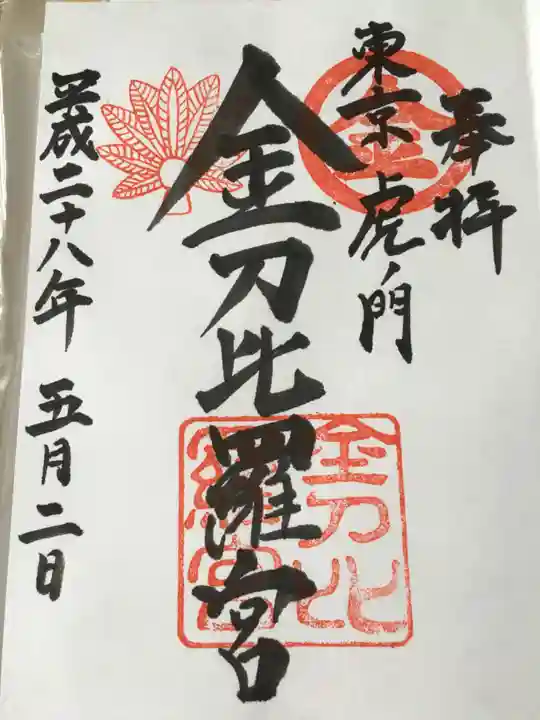 奉拝
東京虎ノ門
金
金刀比羅宮
金刀比
羅宮
平成二十八年 五月二日